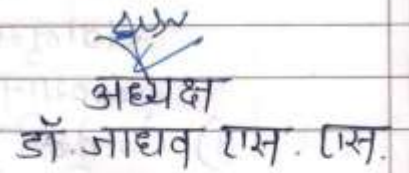 अध्यक्ष
डॉ. जाधव एस. एस.